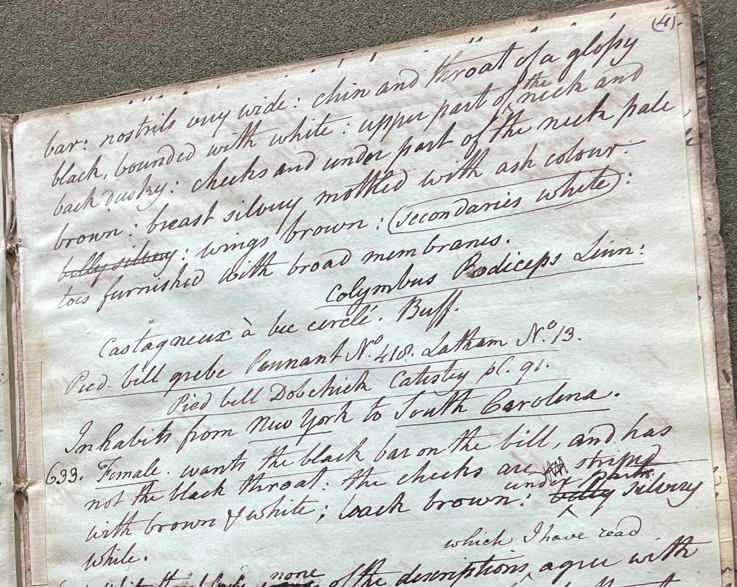 (41).
bar: nostrils very wide: chin and throat of a glossy
black, bounded with white: upper part of the neck and
back dusky: cheeks and under part of the neck pale
brown: breast silvery mottled with ash colour:
belly silvery: wings brown: (secondaries white):
toes furnished with broad membranes.
Colymbus Podiceps Linn:
Castagneux à bec cerclé. Buff.
Pied-bill grebe Pennant No. 418. Latham No. 13.
Pied bill Dobchick Catesby pl. 91.
Inhabits from New York to South Carolina.
633. Female. wants the black bar on the bill, and has
not the black throat: the cheeks are striped
with brown & white; back brown: under parts belly silvery
white.
which I have read
none of the descriptions agree with